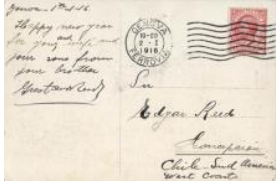 Genova. 1st-1-16
Happy new year
and
for your wife and
your sons from
your brother
GENOVA
10-20
2-1
1916
FERROVIA
Sr
Edgar Reed
Concepción
Chile - Sud America
West Coast